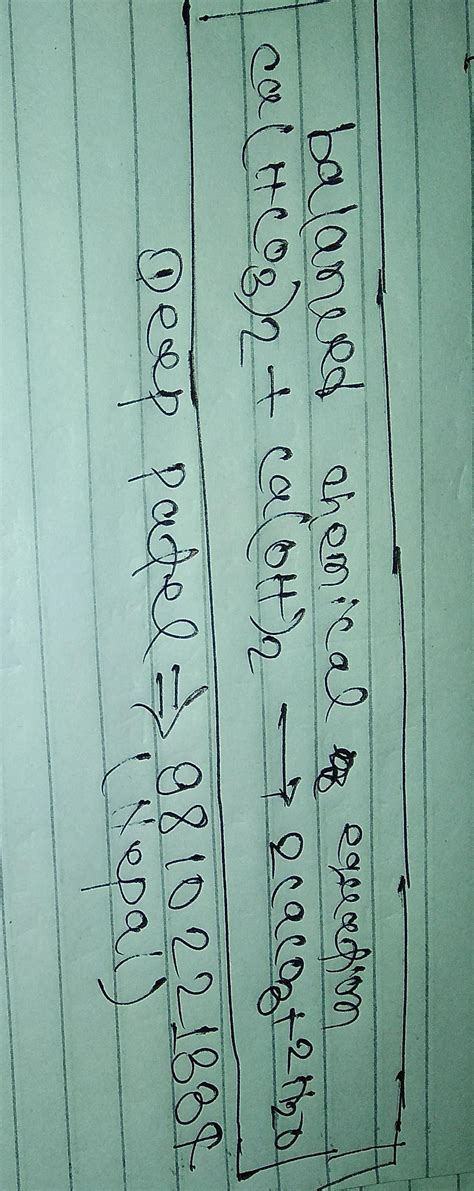 balanced chemical equation
ca(HCO3)2 + ca(OH)2 → 2caco3 + 2H2O
Deep patel ⇒
(Nepal)